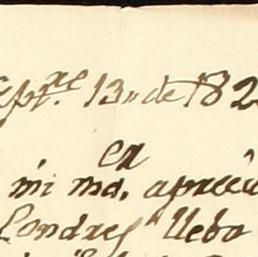 Sepre. 13,, de 182
en
mi ma. apreciu
Londres a llebo